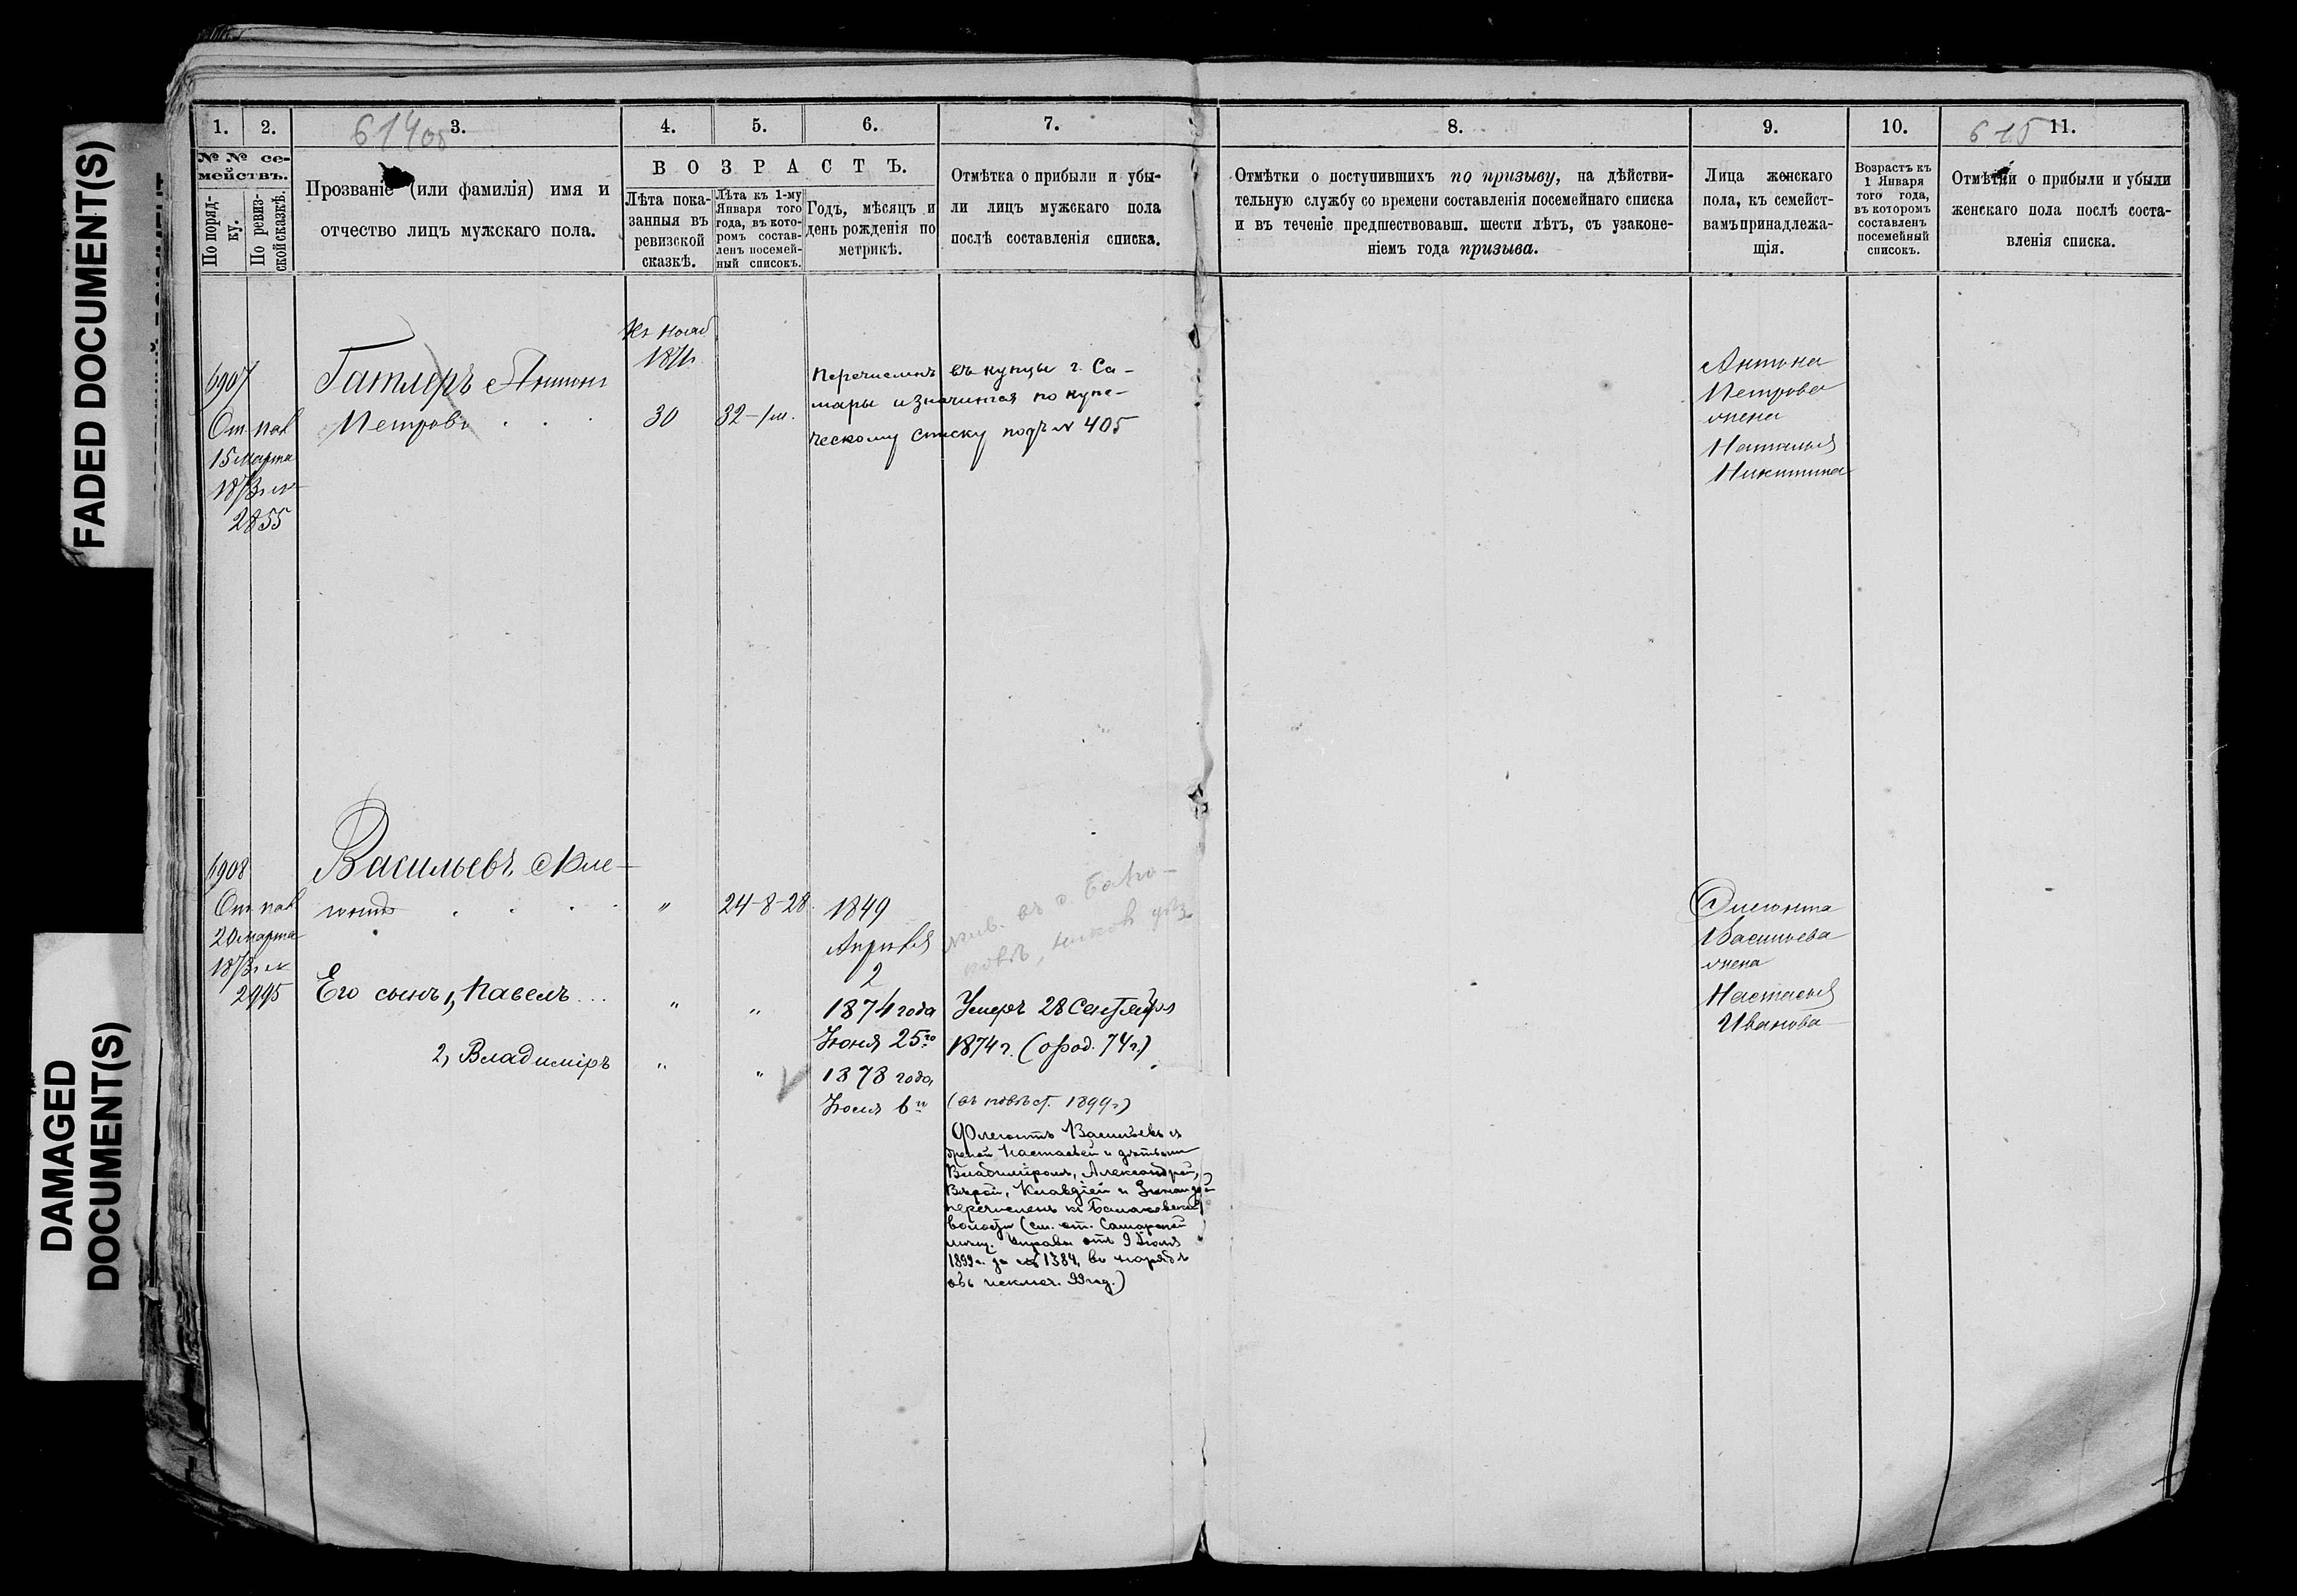 FADED DOCUMENT(S)
DAMAGED
DOCUMENT(S)
1. 2. 3. 4. 5. 6. 7. 8. 9. 10. 11.
614об
615
№ № се-
мействъ.
По поряд-
ку.
По ревиз-
ской сказкѣ.
Прозваніе (или фамилія) имя и
отчество лицъ мужскаго пола.
ВОЗРАСТЪ.
Лѣта пока-
занныя въ
ревизской
сказкѣ.
Лѣта къ 1-му
Января того
года, въ кото-
ромъ состав-
ленъ посемей-
ный списокъ.
Годъ, мѣсяцъ и
день рожденія по
метрикѣ.
Отмѣтка о прибыли и убы-
ли лицъ мужскаго пола
послѣ составленія списка.
Отмѣтки о поступившихъ по призыву, на дѣйстви-
тельную службу со времени составленія посемейнаго списка
и въ теченіе предшествовавш. шести лѣтъ, съ узаконе-
ніемъ года призыва.
Лица женскаго
пола, къ семейст-
вамъ принадлежа-
щія.
Возрастъ къ
1 Января
того года,
въ которомъ
составленъ
посемейный
списокъ.
Отмѣтки о прибыли и убыли
женскаго пола послѣ соста-
вленія списка.
6907
15 Марта
2855
Гатлеръ Антонъ
Петровъ
30
32-1м.
Перечисленъ въ купцы г. Са-
мары и значится по купе-
ческому списку подъ № 405
Антона
Петрова
жена
Наталья
Никитина
6908
20 марта
2995
Васильевъ Фле-
гонтъ
" 24-8-28
1849
Апрѣля
2
жив. въ с. Бала-
ковѣ, Никол уѣз.
Его сынъ 1, Павелъ
" "
1874 года
Іюня 25го
Умеръ 28 Сентября
1874 г. (о род. 74 г.)
2, Владиміръ
" "
1878 года,
Іюля 6го
(въ повѣст. 1899 г.)
Флегонтъ Васильевъ съ
женой Настасьей и дѣтьми
Владиміромъ, Александрой,
Вѣрой, Клавдіей и Зинаидой
перечисленъ къ Балаковской
волости (см. от. Самарской
управы отъ 9 Іюля
1899 г. за № 1384, въ нарядѣ
объ исключ. 99 год.)
Флегонта
Васильева
жена
Настасья
Иванова